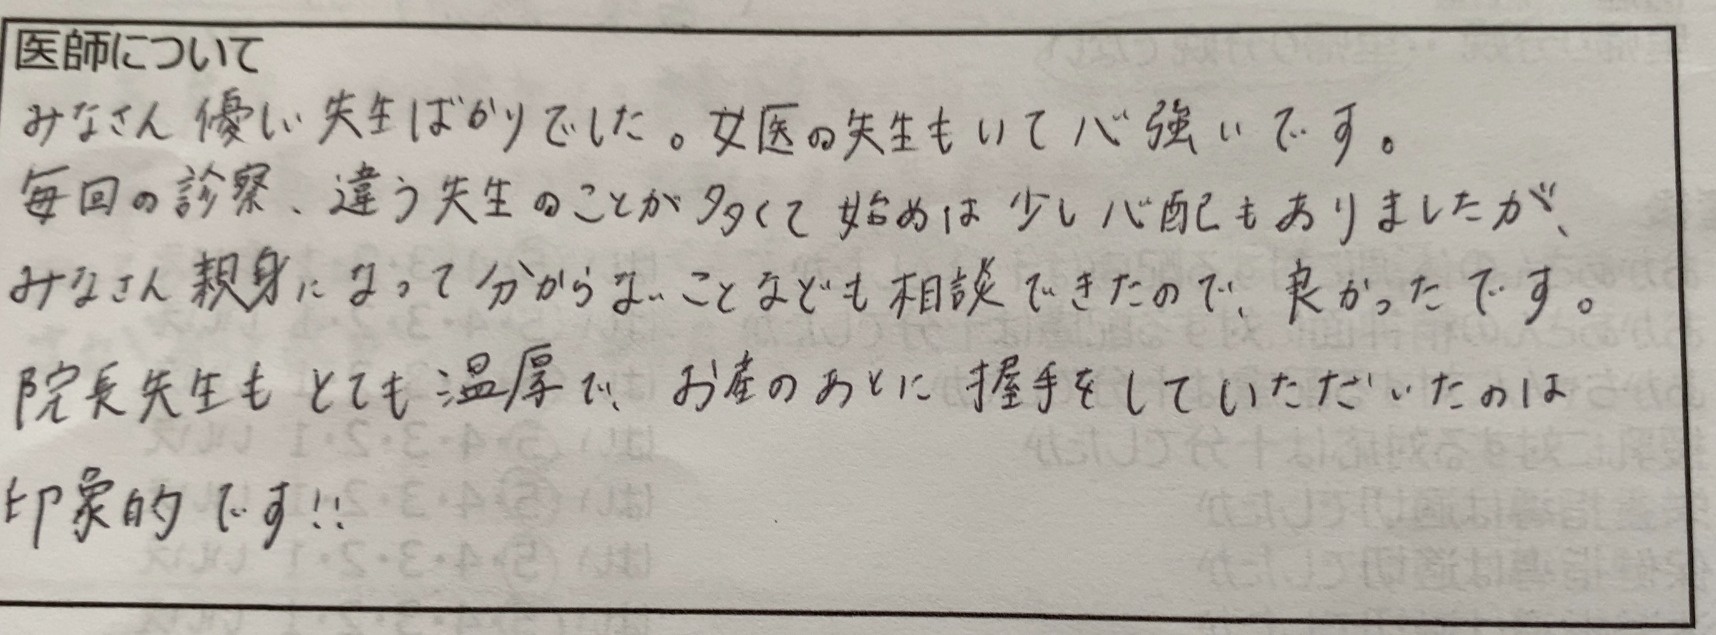 医師について
みなさん優しい先生ばかりでした。女医の先生もいて心強いです。
毎回の診察、違う先生のことが多くて始めは少し心配もありましたが、
みなさん親身になって分からないことなども相談できたので、良かったです。
院長先生もとても温厚で、お産のあとに握手をしていただいたのは
印象的です!!